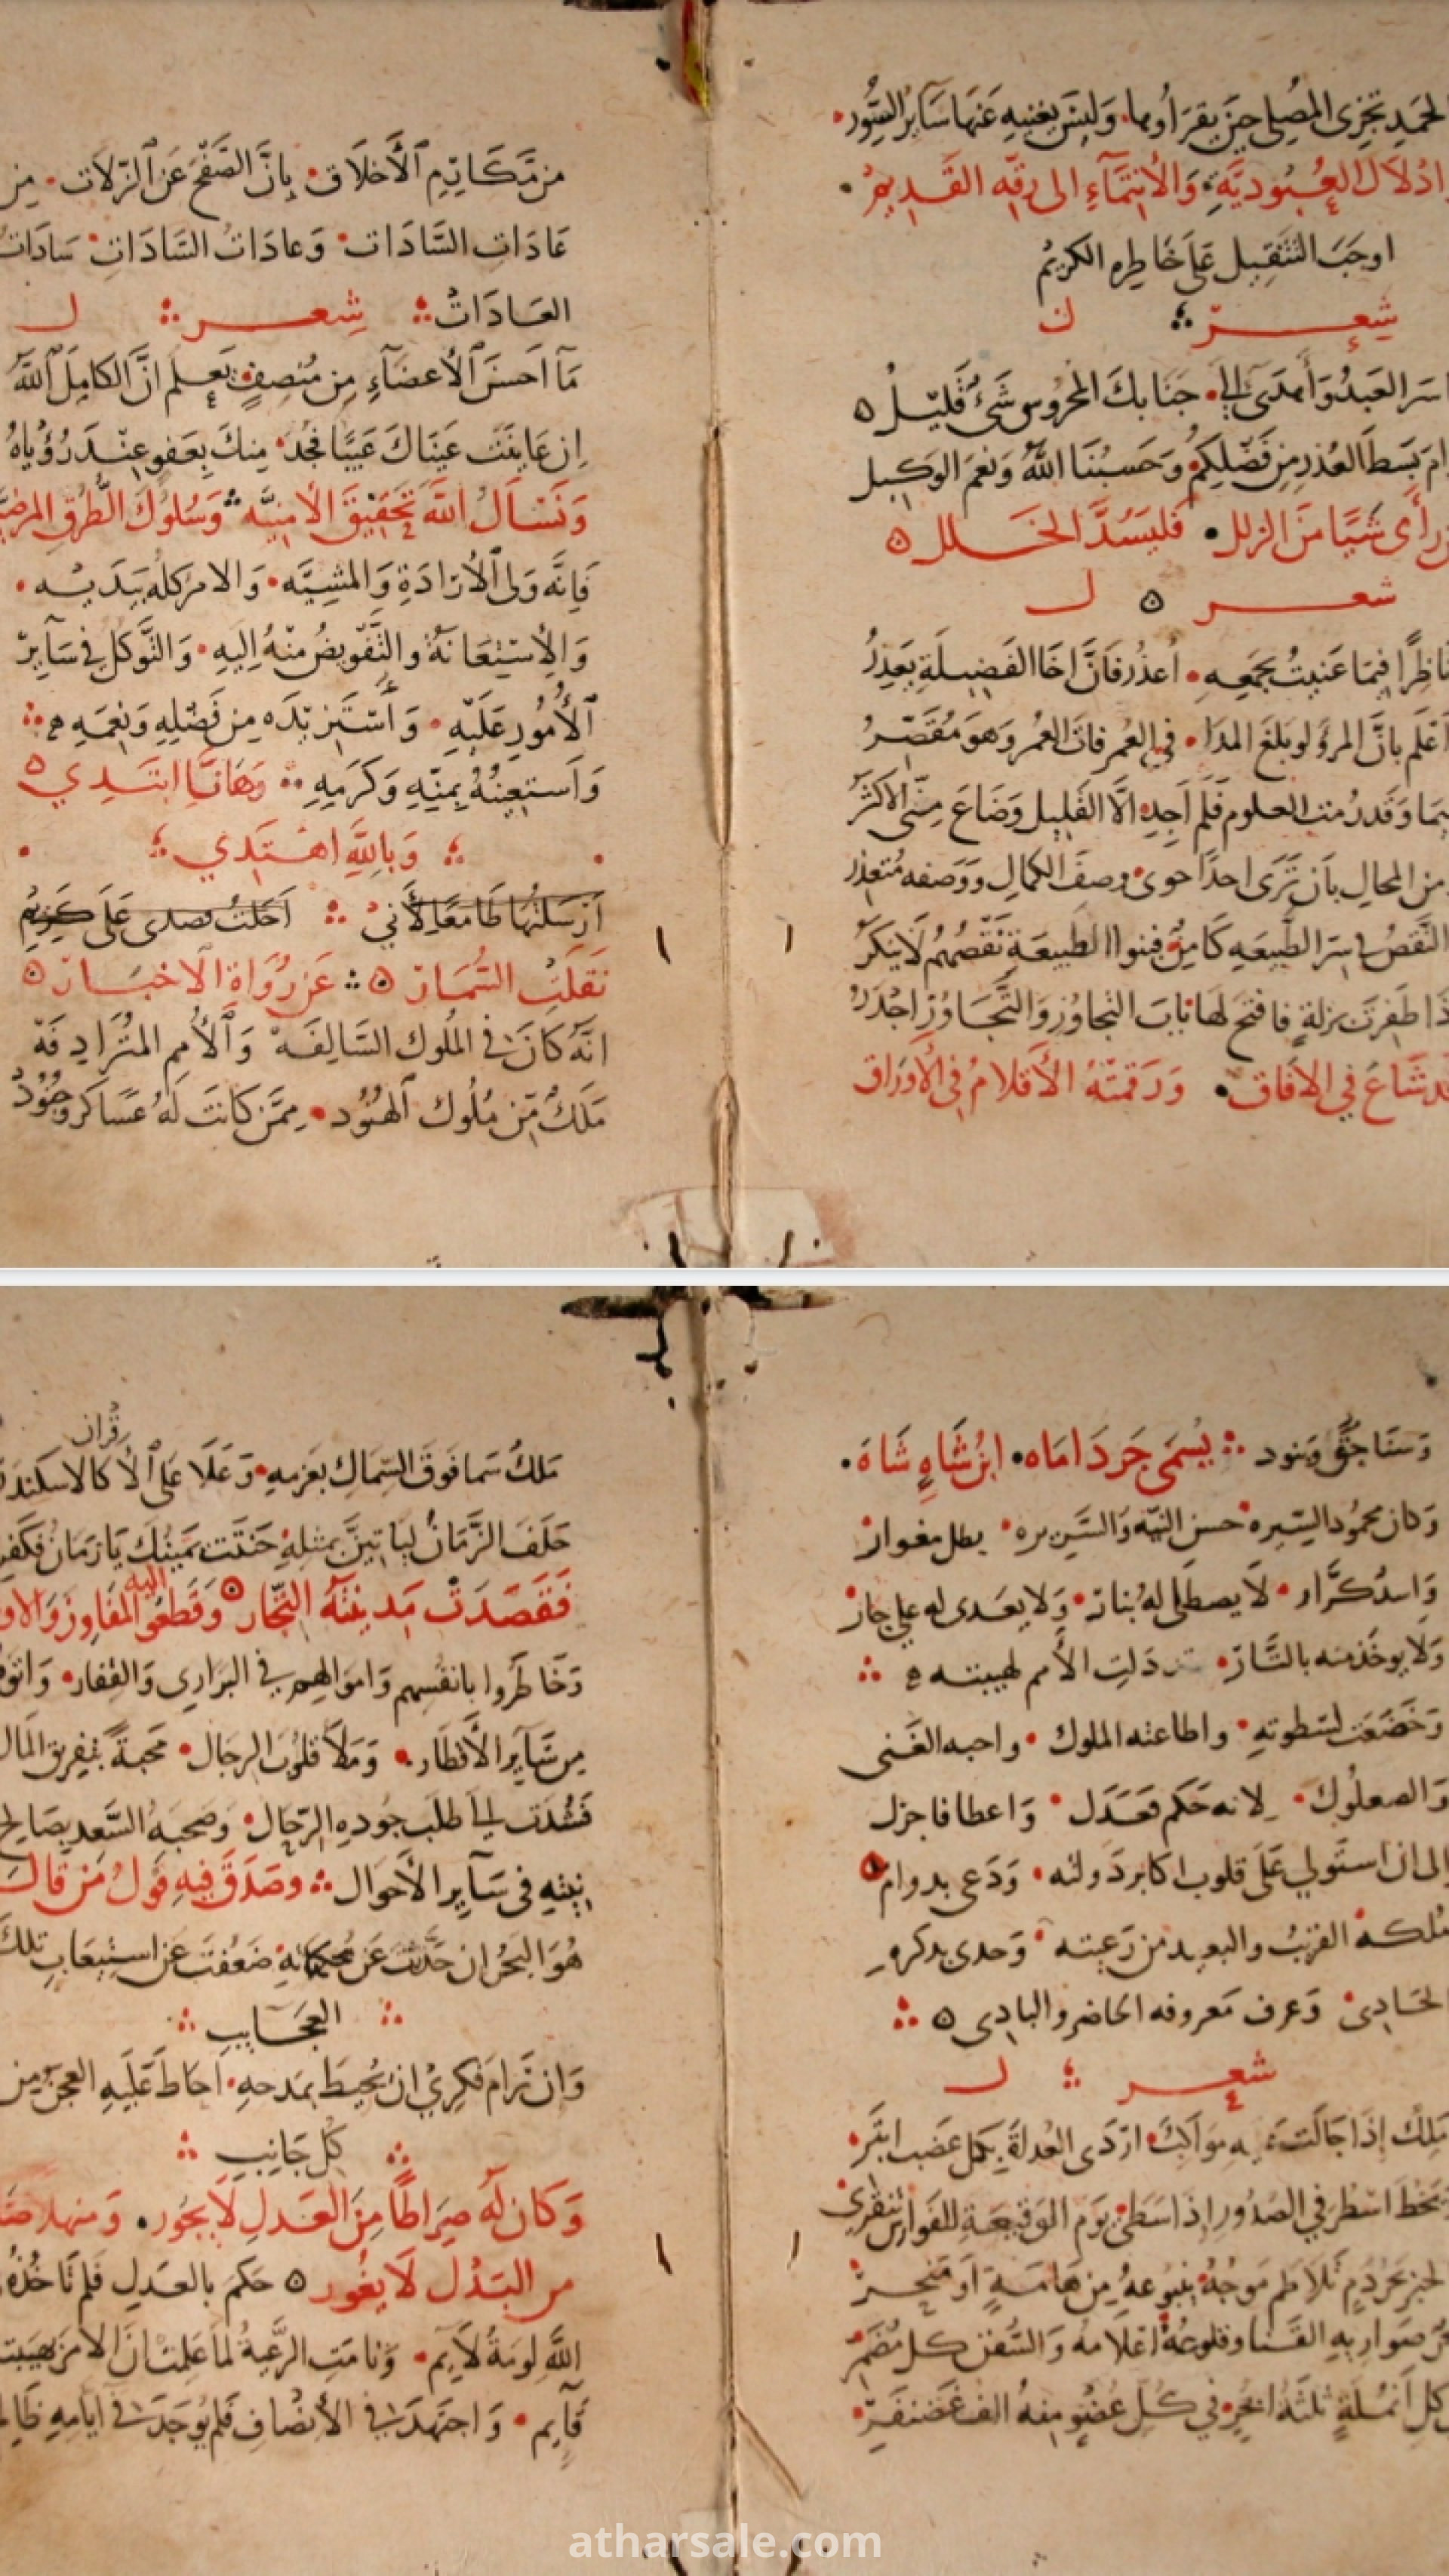 الحمد تجزى المصلي حين يقرأوها وليس يغنيه عنها سآير السور
ادلال العبوديّة والأنتمآء الى رقّه القديم
اوجب التثقيل على خاطره الكريم
شعر
العبد وأهدى الى جنابك المحروس شئ قليل
بسط العذر من فضلكم وحسبنا الله ونعم الوكيل
رأى شيًا من الزلل فليسدّ الخلل
شعر
ناظرًا فيما عنيت بجمعه أعذر فانّ اخا الفضيلة يعذر
اعلم بانّ المرؤ لو بلغ المدا في العمر فات العمر وهو مقصّر
العلوم فلم اجد الّا القليل وضاع منّى الاكثر
من المحال بان ترى احدًا حوى وصف الكمال وووصفه متعذر
النّقص في سر الطّبيعه كامن فبنوا الطبيعة نقصهم لا ينكر
طفرت بزلة فافتح لها باب التجاوز والتّجاوز اجدر
شاع في الافاق ورقمته الأقلام في الأوراق
من مّكارم الأخلاق بانّ الصّفح عن الزّلات من
عادات السّادات وعادات السّادات سادات
العادات شعر
مآ احسن الأعضآء من منصف يعلم انّ الكامل الله
ان عاينت عيناك عيبًا فجد منك بعفو عند رؤياه
ونسأل الله تحقيق الامنيّه وسلوك الطّرق المرضيّ
فانّه ولى الأرادة والمشيّه والامر كله بيديه
والأستعانة والتّفويض منه اليه والتّوكل في سآير
الأمور عليه وأستزيده من فضله ونعمه
واستعينه بمنّه وكرمه وهانا ابتدي
وبالله اهتدي
ارسلتها طامعًا لأني احلت قصدى على كريم
نقلت السّمار عن رواة الاخبار
انّه كان في الملوك السّالفه والأمم المترادفة
ملك من ملوك الهنود ممّن كانت له عساكر وجنود
وسناجق وبنود يسمى جرداماه ابن شاه شاه
وكان محمود السّيره حسن النيّه والسّريره بطل مغوار
واسد كرّار لا يصطلى له بنار ولا يعدى له على جار
ولا يوخذ منه بالثّار دلت الأمم لهيبته
وخضعت لسطوته واطاعته الملوك واحبه الغنى
والصعلوك لانه حكم فعدل واعطا فاجزل
الى ان استولي على قلوب اكابر دولته ودعى بدوام
ملكه القريب والبعيد من رعيته وحدى بدكره
الحادي وعرف معروفه الحاضر والبادى
شعر
ملك إذا جالت به مواكب اردى العداة بكل عضب ابتر
اسطر في الصّدور اذا سطى يوم الوقيعة للفوارس تنقري
بحر دم تلاطم موجه ينبوعه من هامة او منحر
صواريه القنا وقلوعه اعلامه والسّفن كل مضمّر
كل انملة ثلثة ابحر في كل عضو منه الف غضنفر
ملك سما فوق السّماك بعزمه وعلا على الأقران كالاسكندر
حلف الزّمان ليأتينّ بمثله حنثت يمينك يا زمان فكفر
فقصدت مدينته التّجار وقطعوا اليه المفاوز
وخاطروا بانفسهم واموالهم في البراري والقفار
من سآير الأقطار وملأ قلوب الرجال محبة بتفريق المال
فشدت الى طلب جوده الرّحال وصحبه السّعد بصالح
نيته في سآير الأحوال وصدق فيه قول من قال
هو البحر ان حدّثت عن ضعفت عن استيعاب تلك
العجايب
وان رام فكري ان يحيط بمدحه احاط عليه العجز من
كل جانب
وكان له صراطًا من العدل لا يجور ومنهلا
من البذل لا يغور حكم بالعدل فلم تأخذه
الله لومة لايم ونامت الرّعية لما علمت انّ الامر
قآيم واجتهد في الأنصاف فلم يوجد في ايامه
atharsale.com